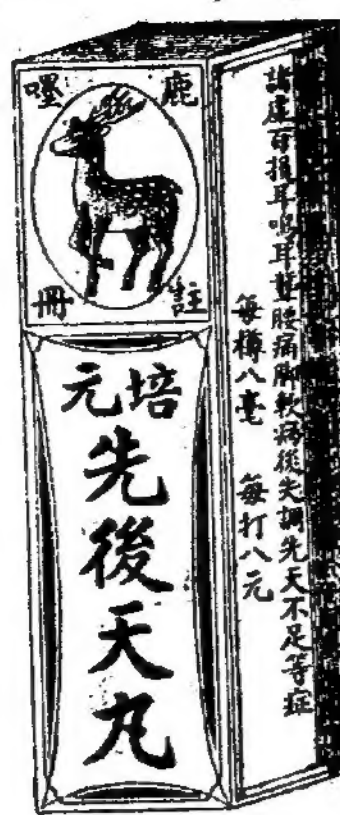 鹿嘜
註冊
培元
先後天丸
諸虛百損耳鳴耳聾腰痛脚軟病後失調先天不足等症
每樽八毫 每打八元